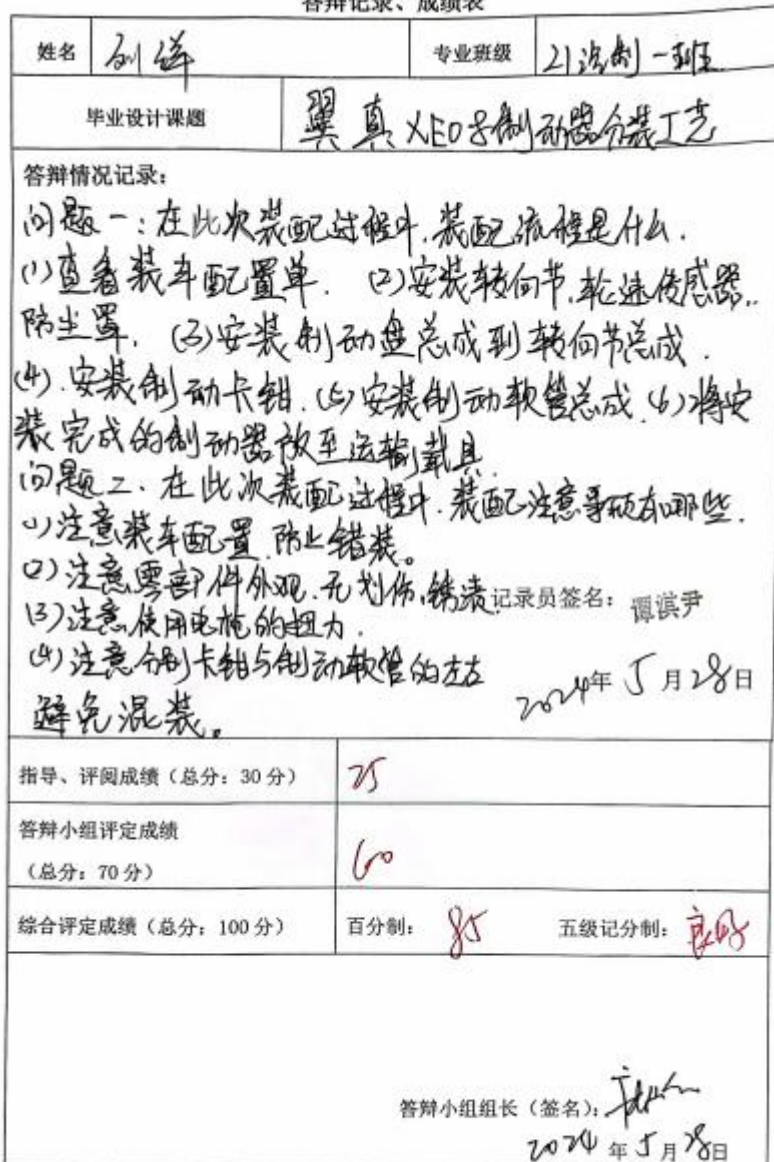 答辩记录、成绩表
姓名 刘洋 专业班级 21汽制一班
毕业设计课题 翼真 分装工艺
答辩情况记录：
问题一：在此次装配过程中,装配流程是什么.
(1)查看装车配置单. (2)安装转向节,轮速传感器,
防尘罩. (3)安装制动盘总成到转向节总成.
(4).安装制动卡钳.(5)安装制动软管总成.(6)将安
装完成的制动器放至运输载具
问题二、在此次装配过程中.装配注意事项有哪些.
(1)注意装车配置,防止错装。
(2)注意零部件外观.无划伤,锈渍 记录员签名： 谭淇尹
(3)注意使用电枪的扭力.
(4)注意分别卡钳与制动软管的左右 2024年5月28日
避免混装。
指导、评阅成绩（总分：30分） 25
答辩小组评定成绩
（总分：70分） 60
综合评定成绩（总分：100分） 百分制： 85 五级记分制： 良好
答辩小组组长（签名）：
2024年5月28日